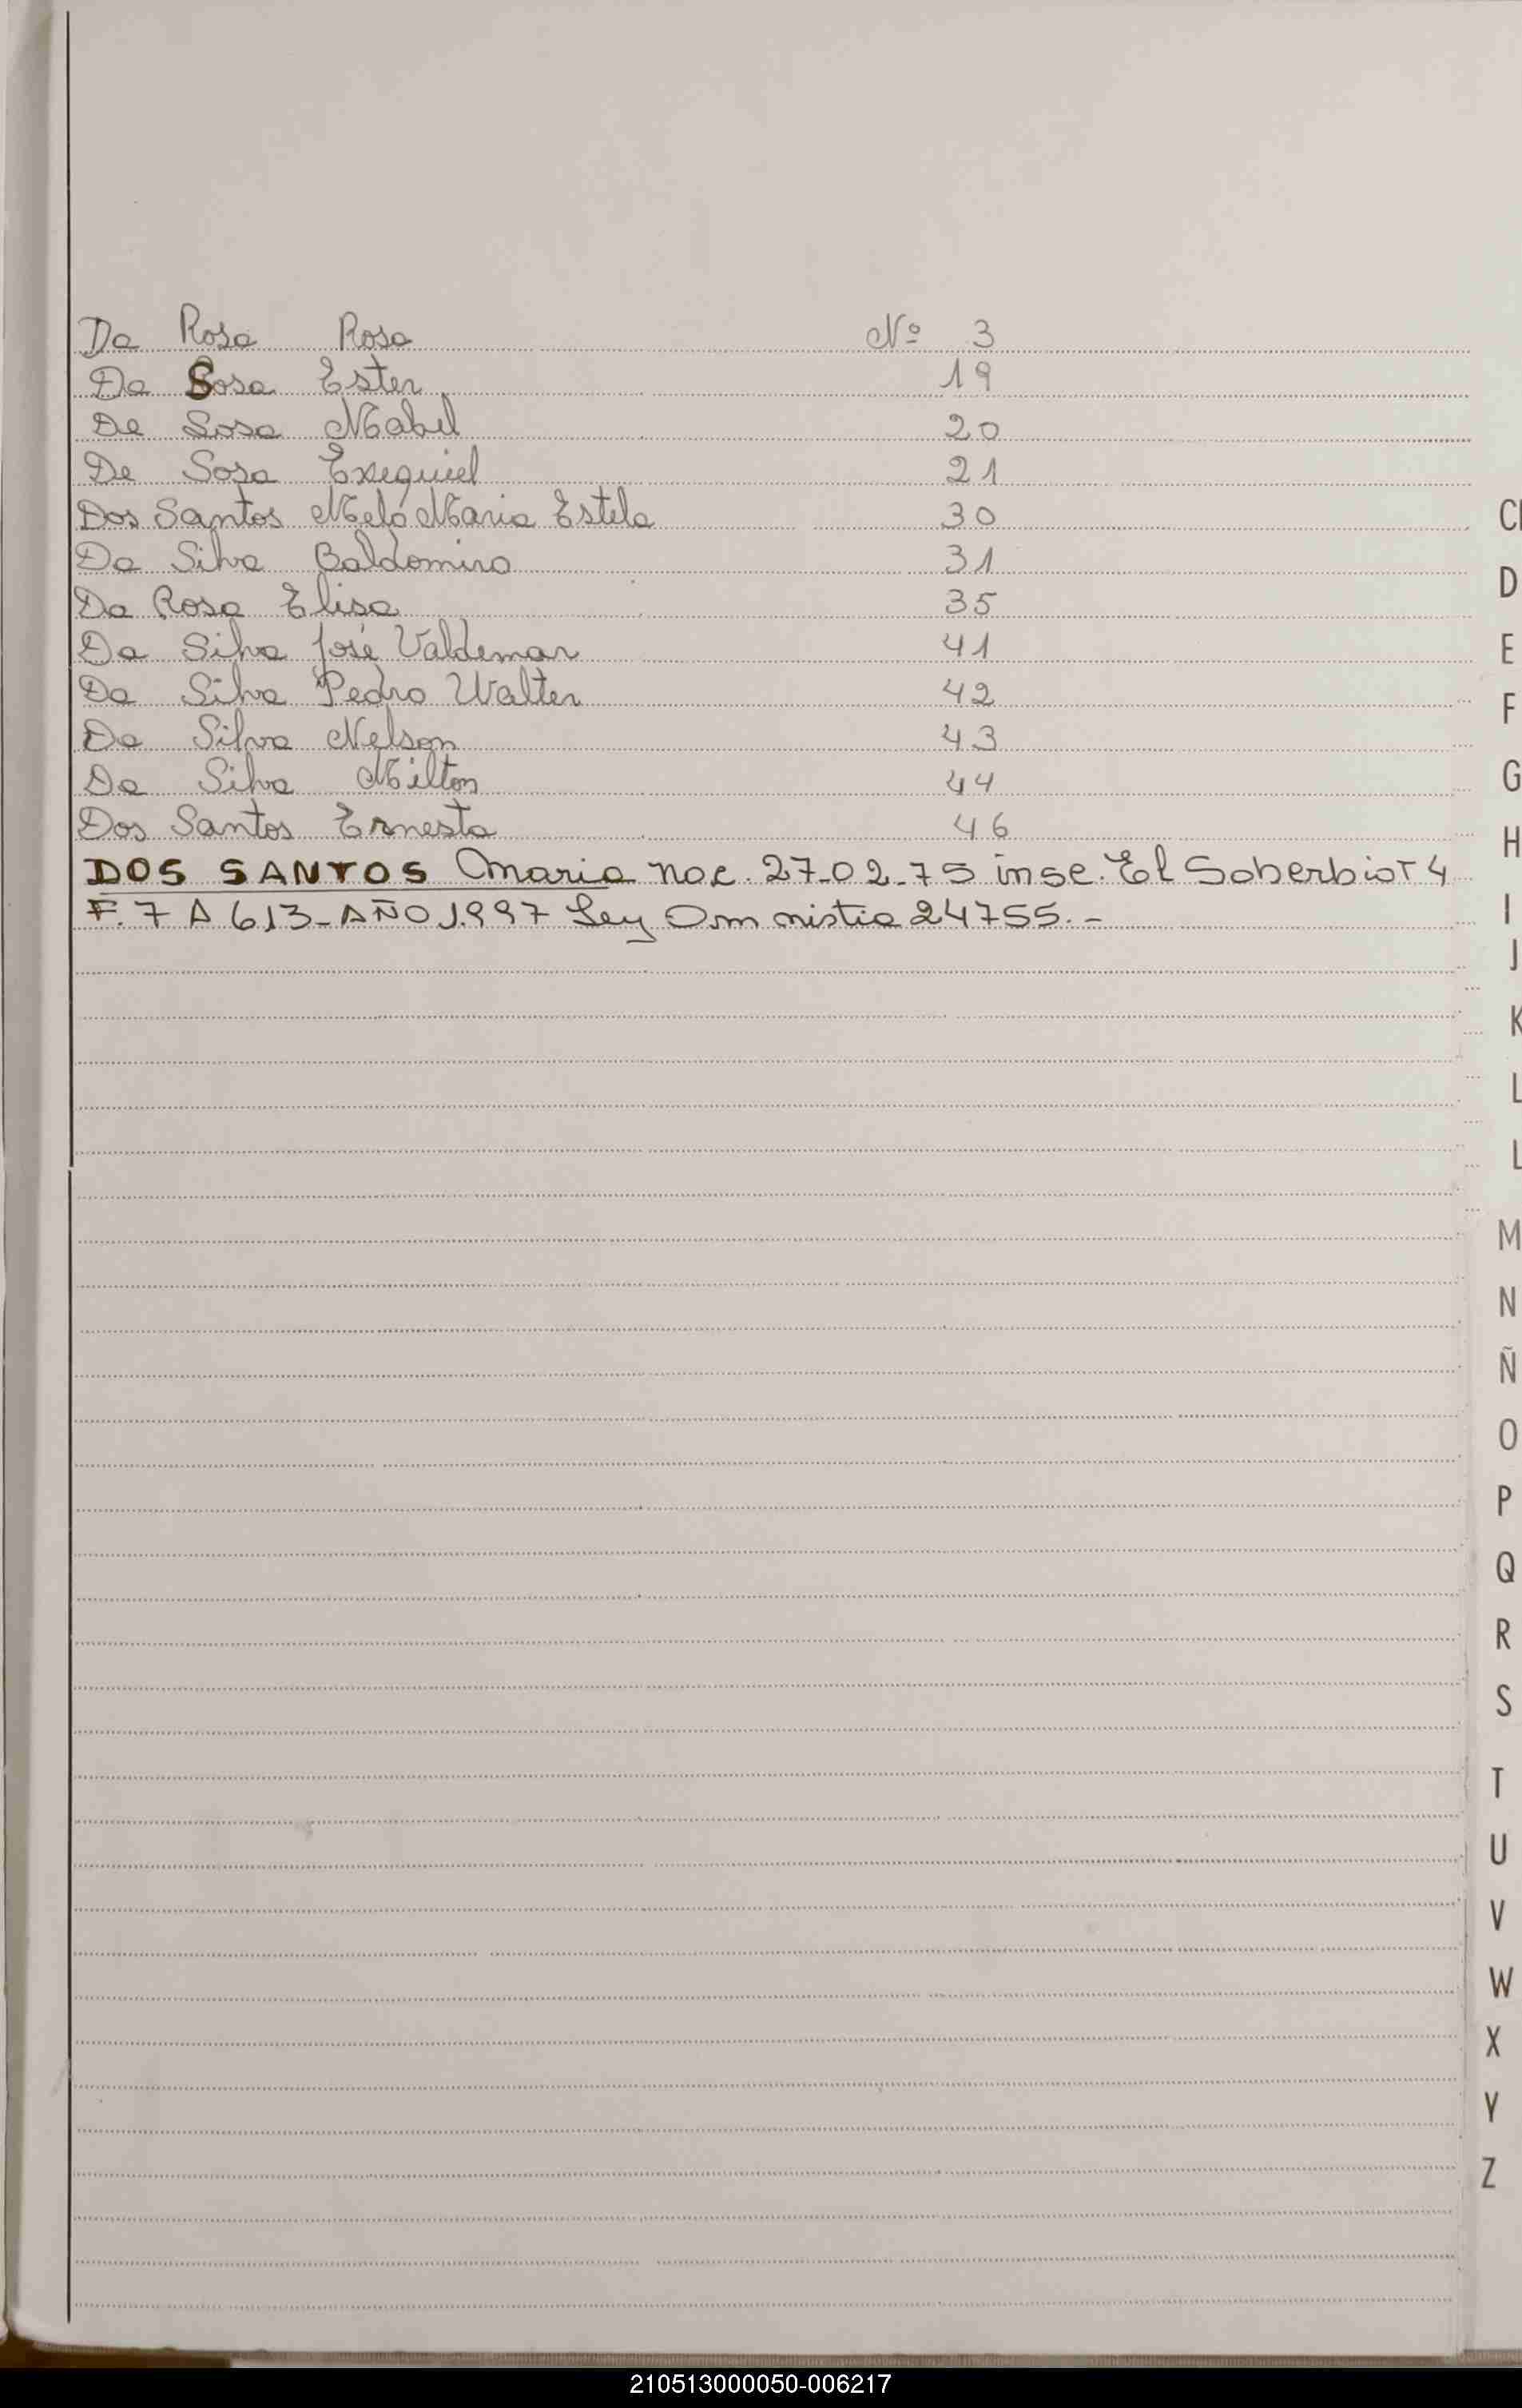 Da Rosa Rosa Nº 3
Da Sosa Ester 19
De Sosa Mabel 20
De Sosa Exequiel 21
Dos Santos Meló Maria Estela 30
Da Silva Baldomiro 31
Da Rosa Elisa 35
Da Silva José Valdemar 41
Da Silva Pedro Walter 42
Da Silva Nelson 43
Da Silva Milton 44
Dos Santos Ernesto 46
DOS SANTOS Maria nac. 27-02-75 insc. El Soberbio T 4
F. 7 A 613-AÑO 1.997 Ley Amnistia 24755.-
CH
D
E
F
G
H
I
J
K
L
L
M
N
Ñ
O
P
Q
R
S
T
U
V
W
X
Y
Z
210513000050-006217